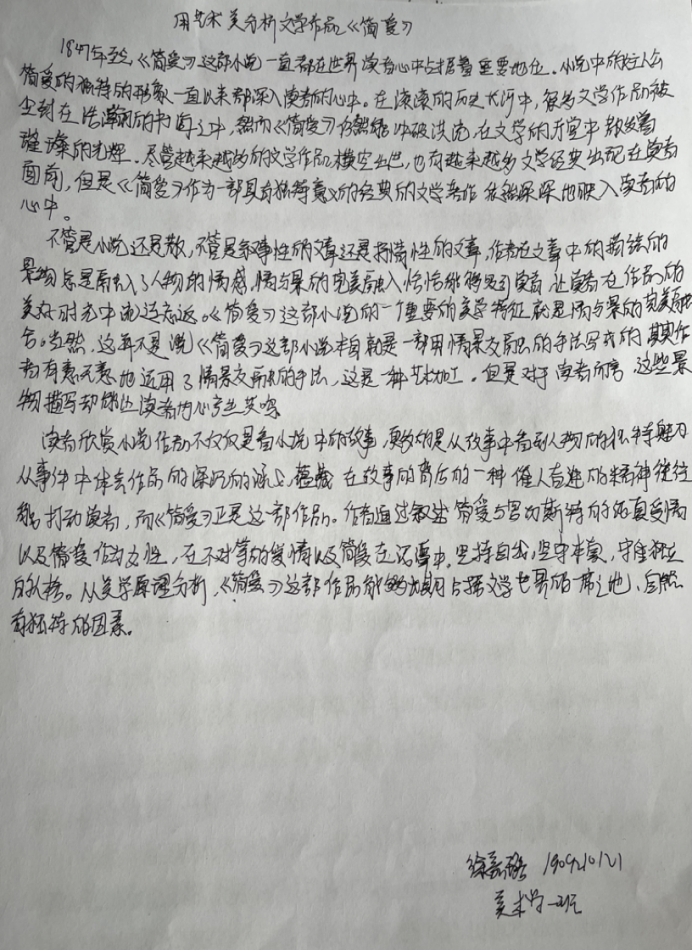 用艺术美分析文学作品《简爱》
1847年至今,《简爱》这部小说一直都在世界读者心中占据着重要地位。小说中的主人公
简爱的独特的形象一直以来都深入读者的心中。在滚滚的历史长河中,很多文学作品被
尘封在浩瀚的书海之中,然而《简爱》仍然能冲破洪流,在文学的天空中散发着
璀璨的光辉。尽管越来越多的文学作品横空出世,也有越来越多文学经典出现在读者
面前,但是《简爱》作为一部具有独特意义的经典的文学著作 依然深深地映入读者的
心中。
不管是小说还是散,不管是叙事性的文章还是抒情性的文章,作者在文章中的描绘的
景物总是融入了人物的情感,情与景的完美融入恰恰能够吸引读者,让读者在作品的
美好时光中流连忘返。《简爱》这部小说的一个重要的美学特征就是情与景的完美融
合。当然,这并不是说《简爱》这部小说本身就是一部用情景交融的手法写成的,其作
者有意无意地运用了情景交融的手法,这是一种艺术加工。但是对于读者而言,这些景
物描写却能让读者内心产生共鸣
读者欣赏小说作品不仅仅是看小说中的故事,更多的是从故事中看到人物的独特魅力
从事件中体会作品的深沉的涵义,蕴藏在故事的背后的一种催人奋进的精神往往
能打动读者,而《简爱》正是这一部作品。作者通过叙述简爱与罗切斯特的纯真爱情
以及简爱作为女性,在不对等的爱情以及简爱在沉浮中,坚持自我,坚守本真,守住独立
的人格。从美学原理分析,《简爱》这部作品能够长期占据文学世界的一席之地,自然
有独特的因素。
徐嘉璐 1909210121
美术学一班